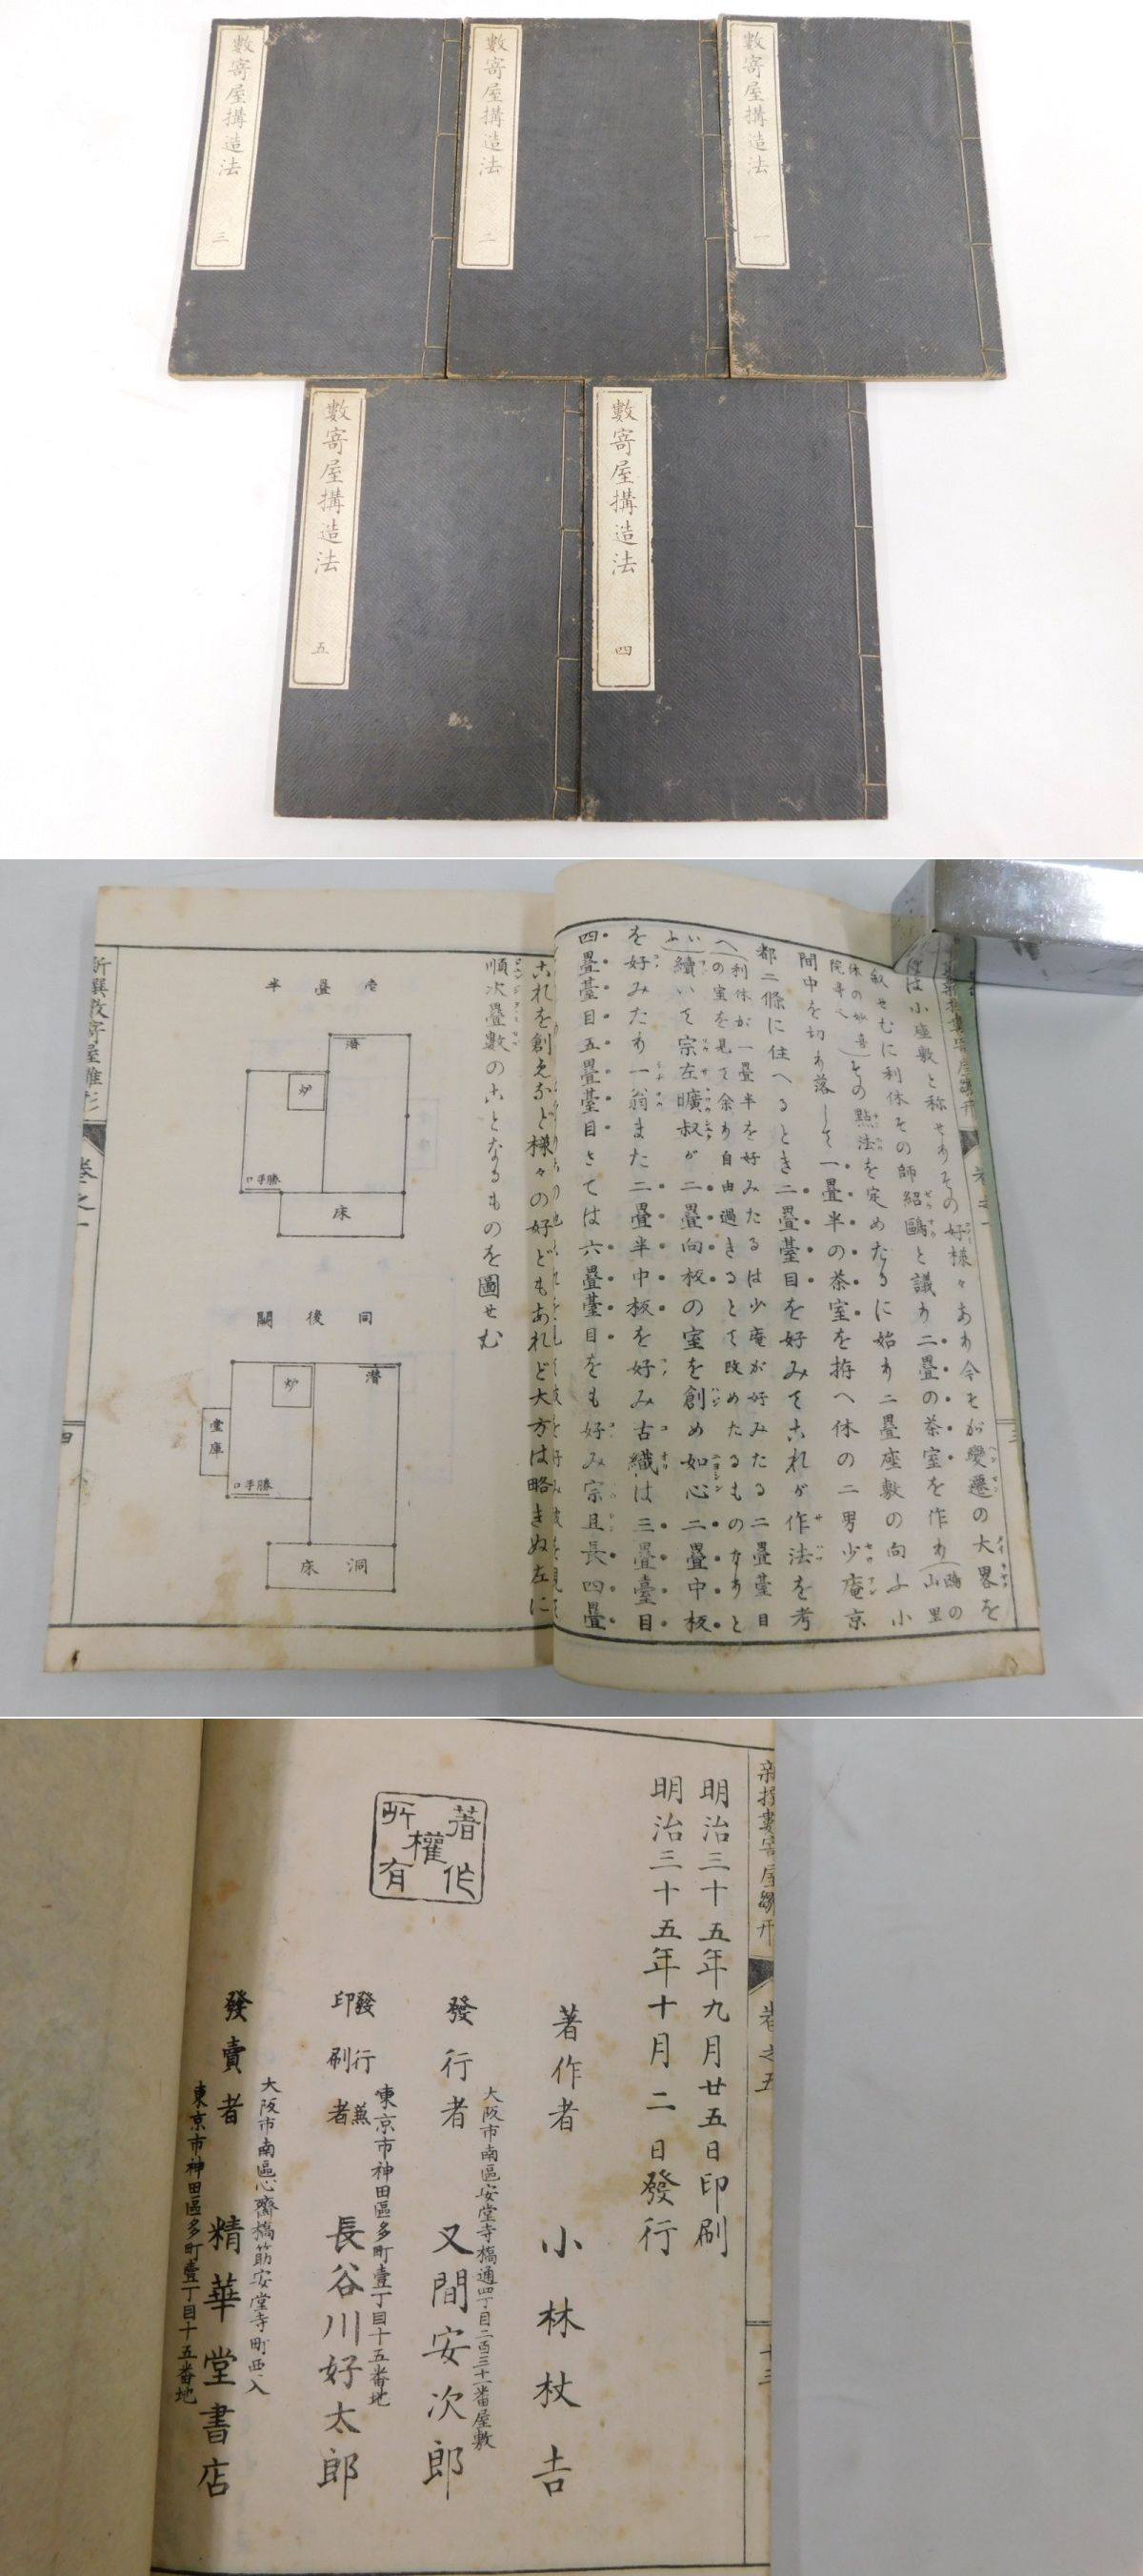 數寄屋搆造法
一
數寄屋搆造法
二
數寄屋搆造法
三
數寄屋搆造法
四
數寄屋搆造法
五
は小座敷と称せありその好様々あり今そが變遷の大畧を
叙せむに利休その師紹鷗と議り二畳の茶室を作り(鷗の山里
休の妙喜院等へ)その點法を定めたるに始り二畳座敷の向ふ小
間中を切り落して一畳半の茶室を拵へ休の二男少庵京
都二條に住へるとき二畳臺目を好みてこれが作法を考
へ(利休が一畳半を好みたるは少庵が好みたる二畳臺目の室を見て余り自由過きるとて改めたるものなりと
いふ)續いて宗左曠叔が二畳向板の室を創め如心二畳中板
を好みたり一翁また二畳半中板を好み古織は三畳臺目
四畳臺目五畳臺目さては六畳臺目をも好み宗旦長四畳
これを創えなど様々の好どもあれど大方は略きぬ左に
順次畳數のことなるものを圖せむ
壱畳半
潜
炉
勝手口
床
同後關
潜
炉
堂庫
勝手口
洞床
新撰數寄屋雛形
卷之一
四
卷之五
十三
明治三十五年九月廿五日印刷
明治三十五年十月二日發行
著作權所有
著作者 小林杖吉
大阪市南區安堂寺橋通四丁目二百三十番屋敷
發行者 又間安次郎
東京市神田區多町壹丁目十五番地
發行兼印刷者 長谷川好太郎
大阪市南區心齋橋筋安堂寺町西入
東京市神田區多町壹丁目十五番地
發賣者 精華堂書店